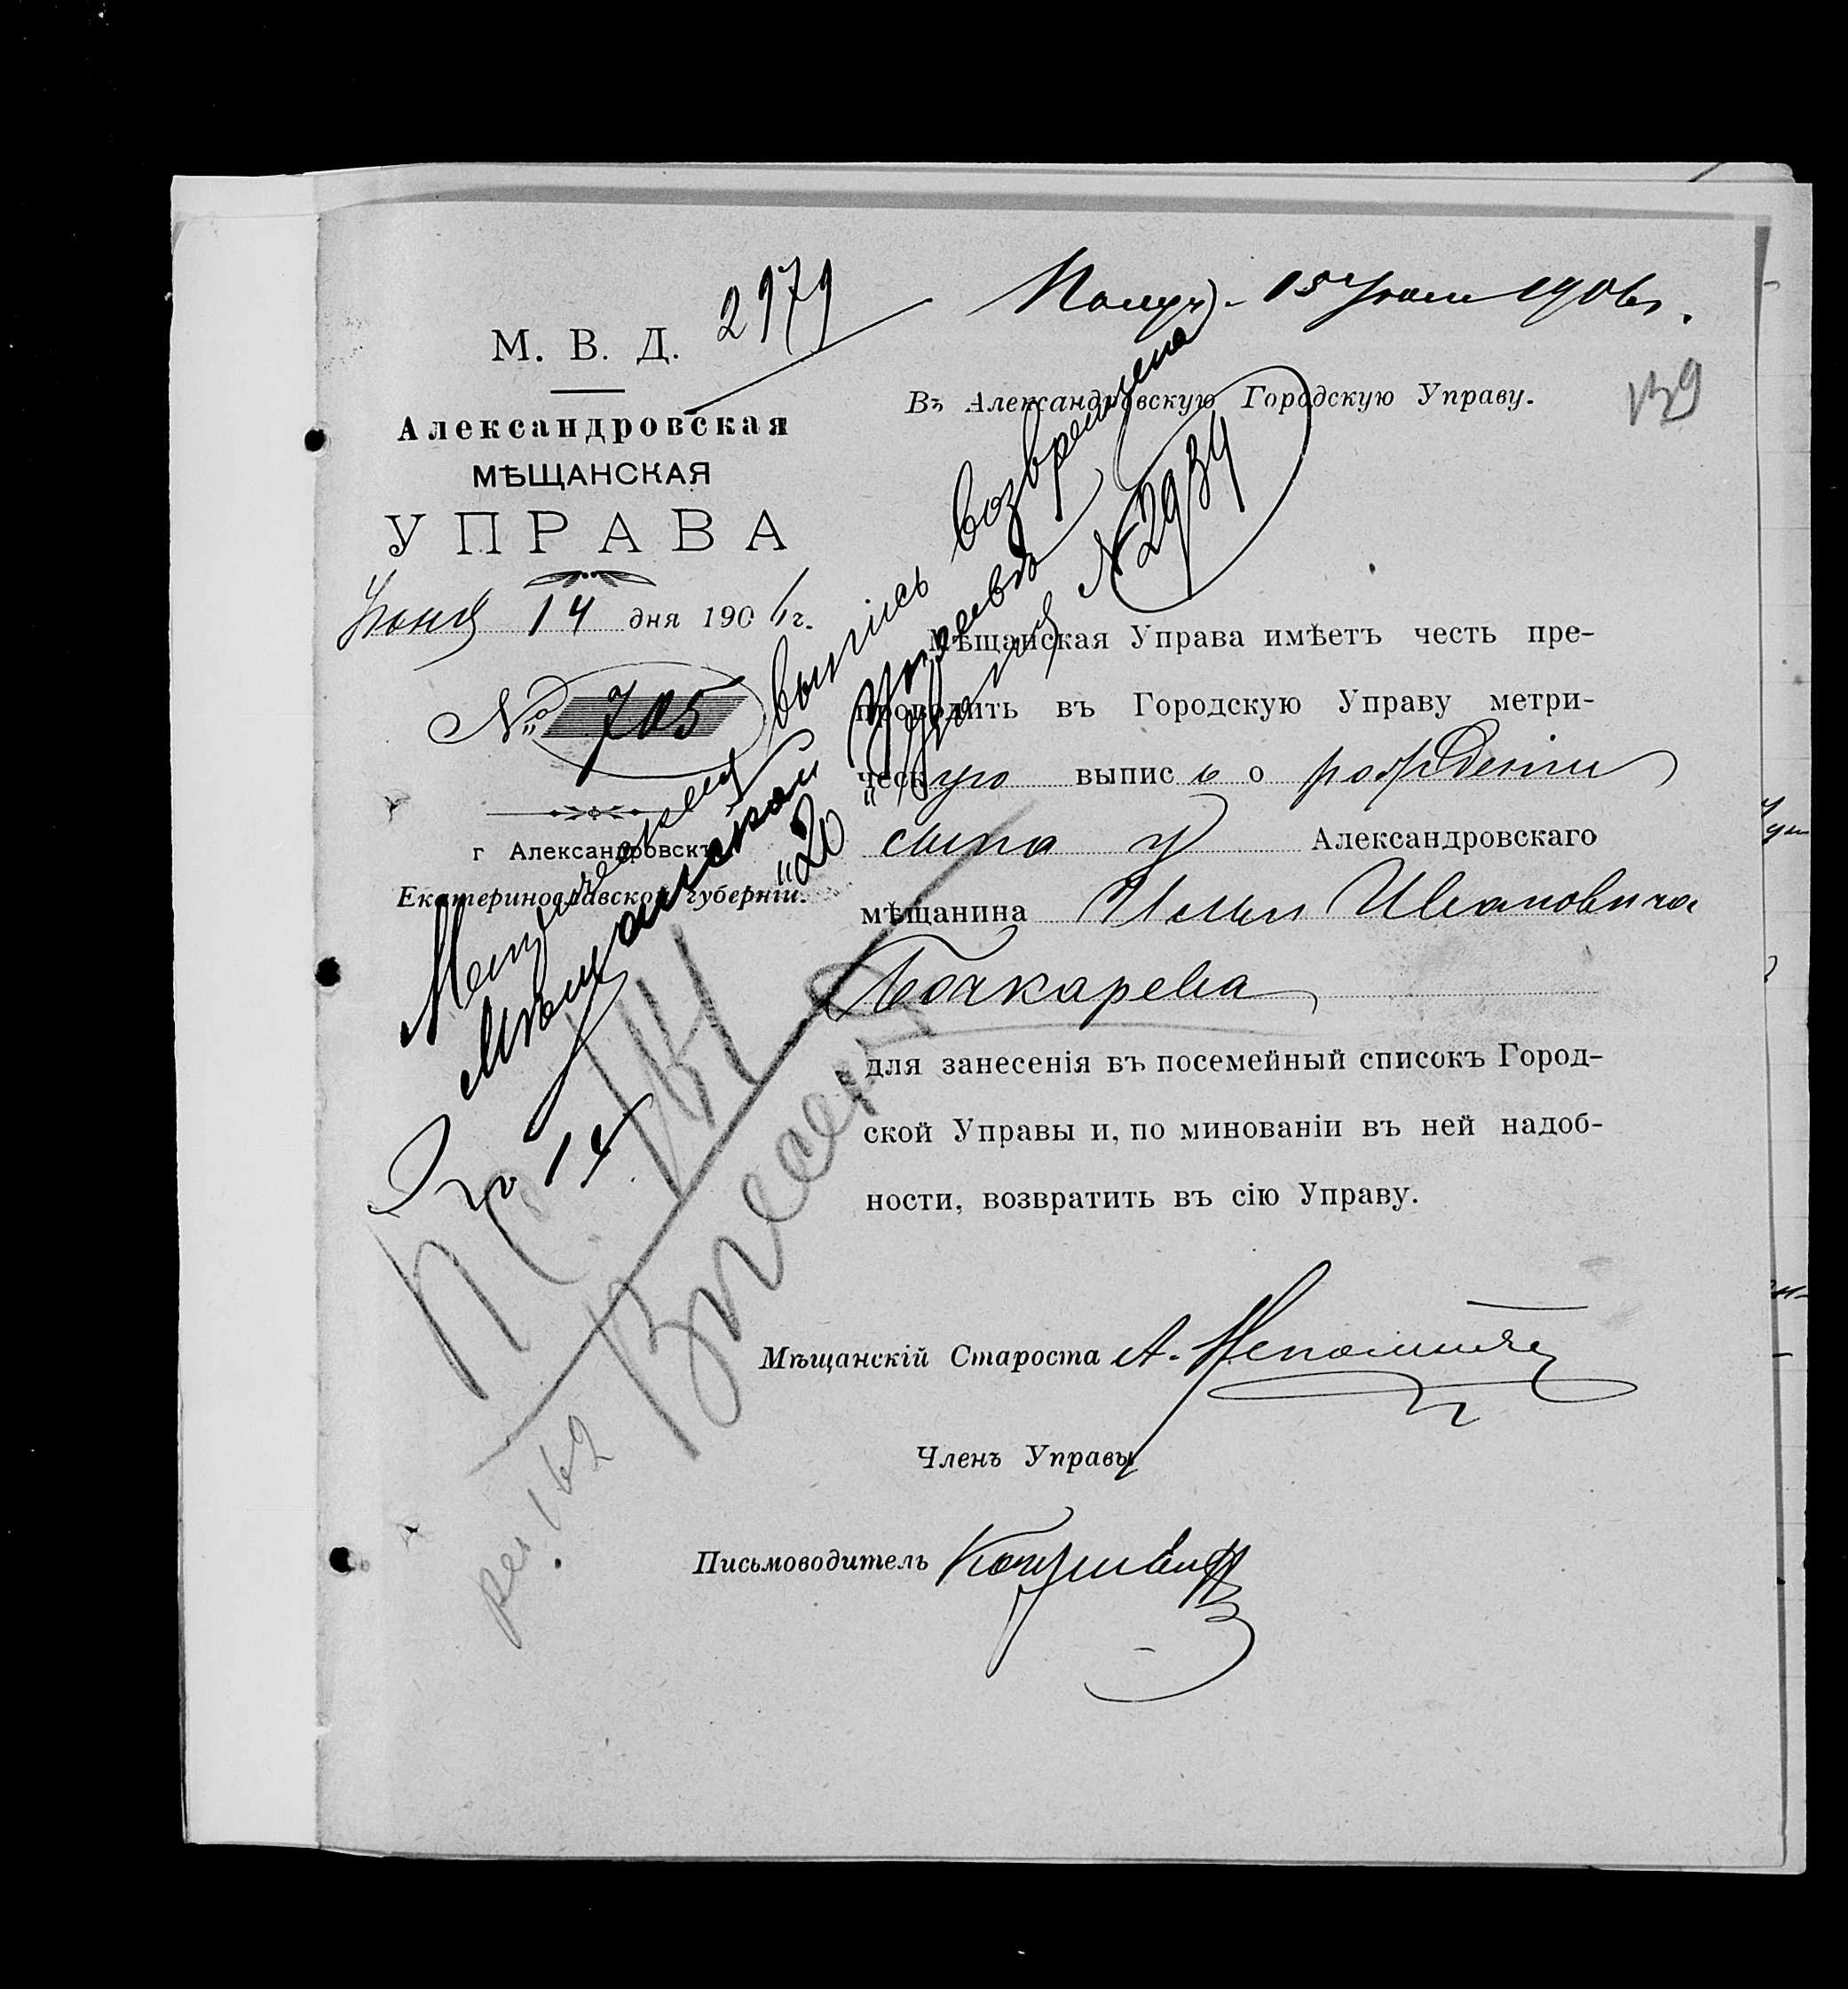 2979
Получ. 15 Юня 1906 г.
139
М. В. Д.
Александровская
МѢЩАНСКАЯ
УПРАВА
Юня 14 дня 1906 г.
№ 705
г Александровскъ
Екатеринославской губерніи.
Въ Александровскую Городскую Управу.
Мѣщанская Управа имѣетъ честь пре-
проводить въ Городскую Управу метри-
ческую выпись о рожденіи
сына у Александровскаго
мѣщанина Ильи Ивановича
Бочкарева
для занесенія въ посемейный списокъ Город-
ской Управы и, по минованіи въ ней надоб-
ности, возвратить въ сію Управу.
Мѣщанскій Староста А. Непомнящ
Членъ Управы
Письмоводитель
Метрическая выпись возвращена
Мѣщанской Управѣ
"20" Юня № 2934
За 14
Внесен
162